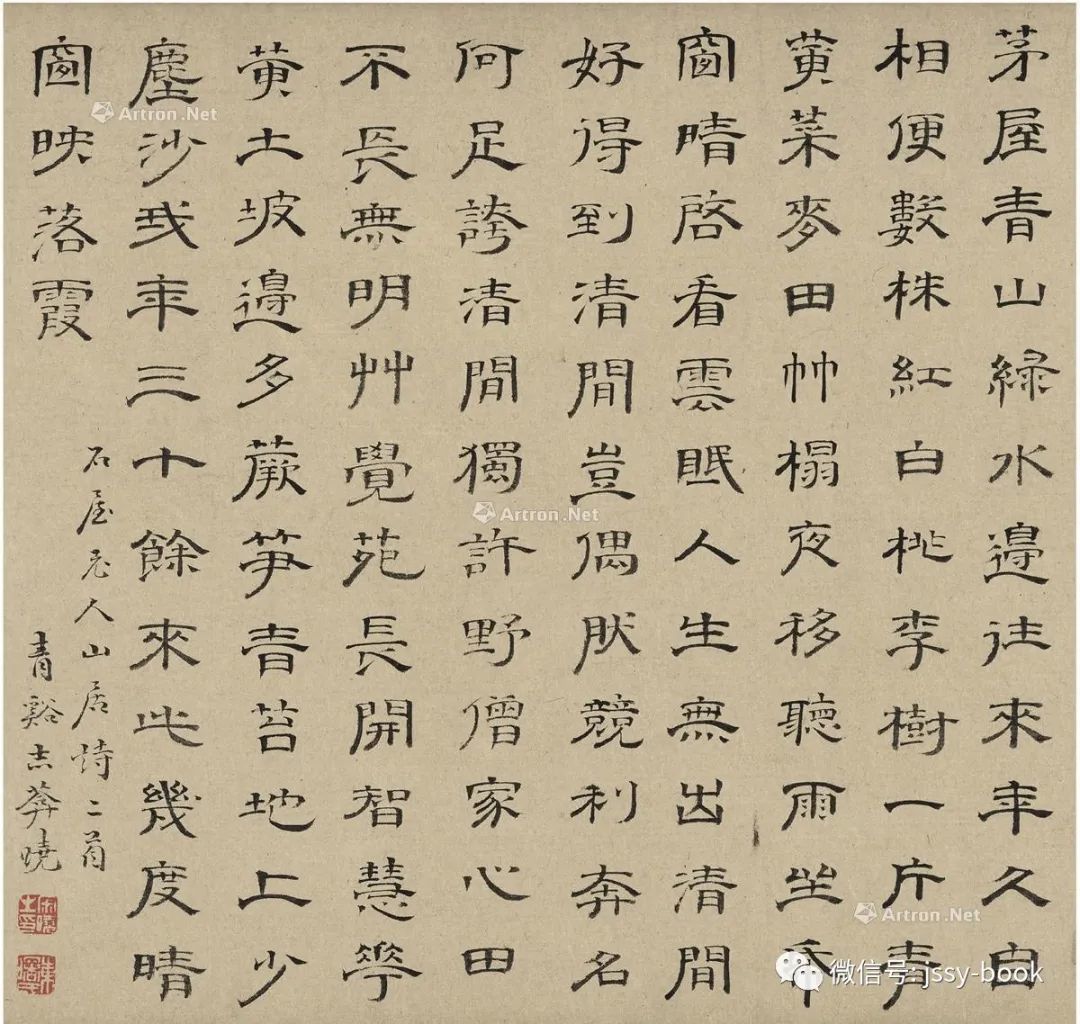 茅屋青山綠水邊往來年久自
相便數株紅白桃李樹一片青
黃菜麥田竹榻夜移聽雨坐帋
窗晴啓看雲眠人生無出清閒
好得到清閒豈偶肰競利奔名
何足誇清閒獨許野僧家心田
不長無明艸覺苑長開智慧花
黃土坡邊多蕨笋青苔地上少
塵沙我年三十餘來此幾度晴
窗映落霞
石屋老人山居詩二首
青谿曉
Artron.Net
Artron.Net
Artron.Net
微信号: jssy-book